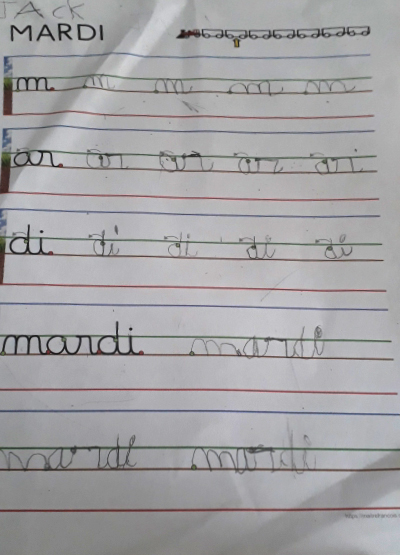 JACK
MARDI
m m m m m
ar ar ar ar ar
di di di di di
mardi mardi
mardi mardi